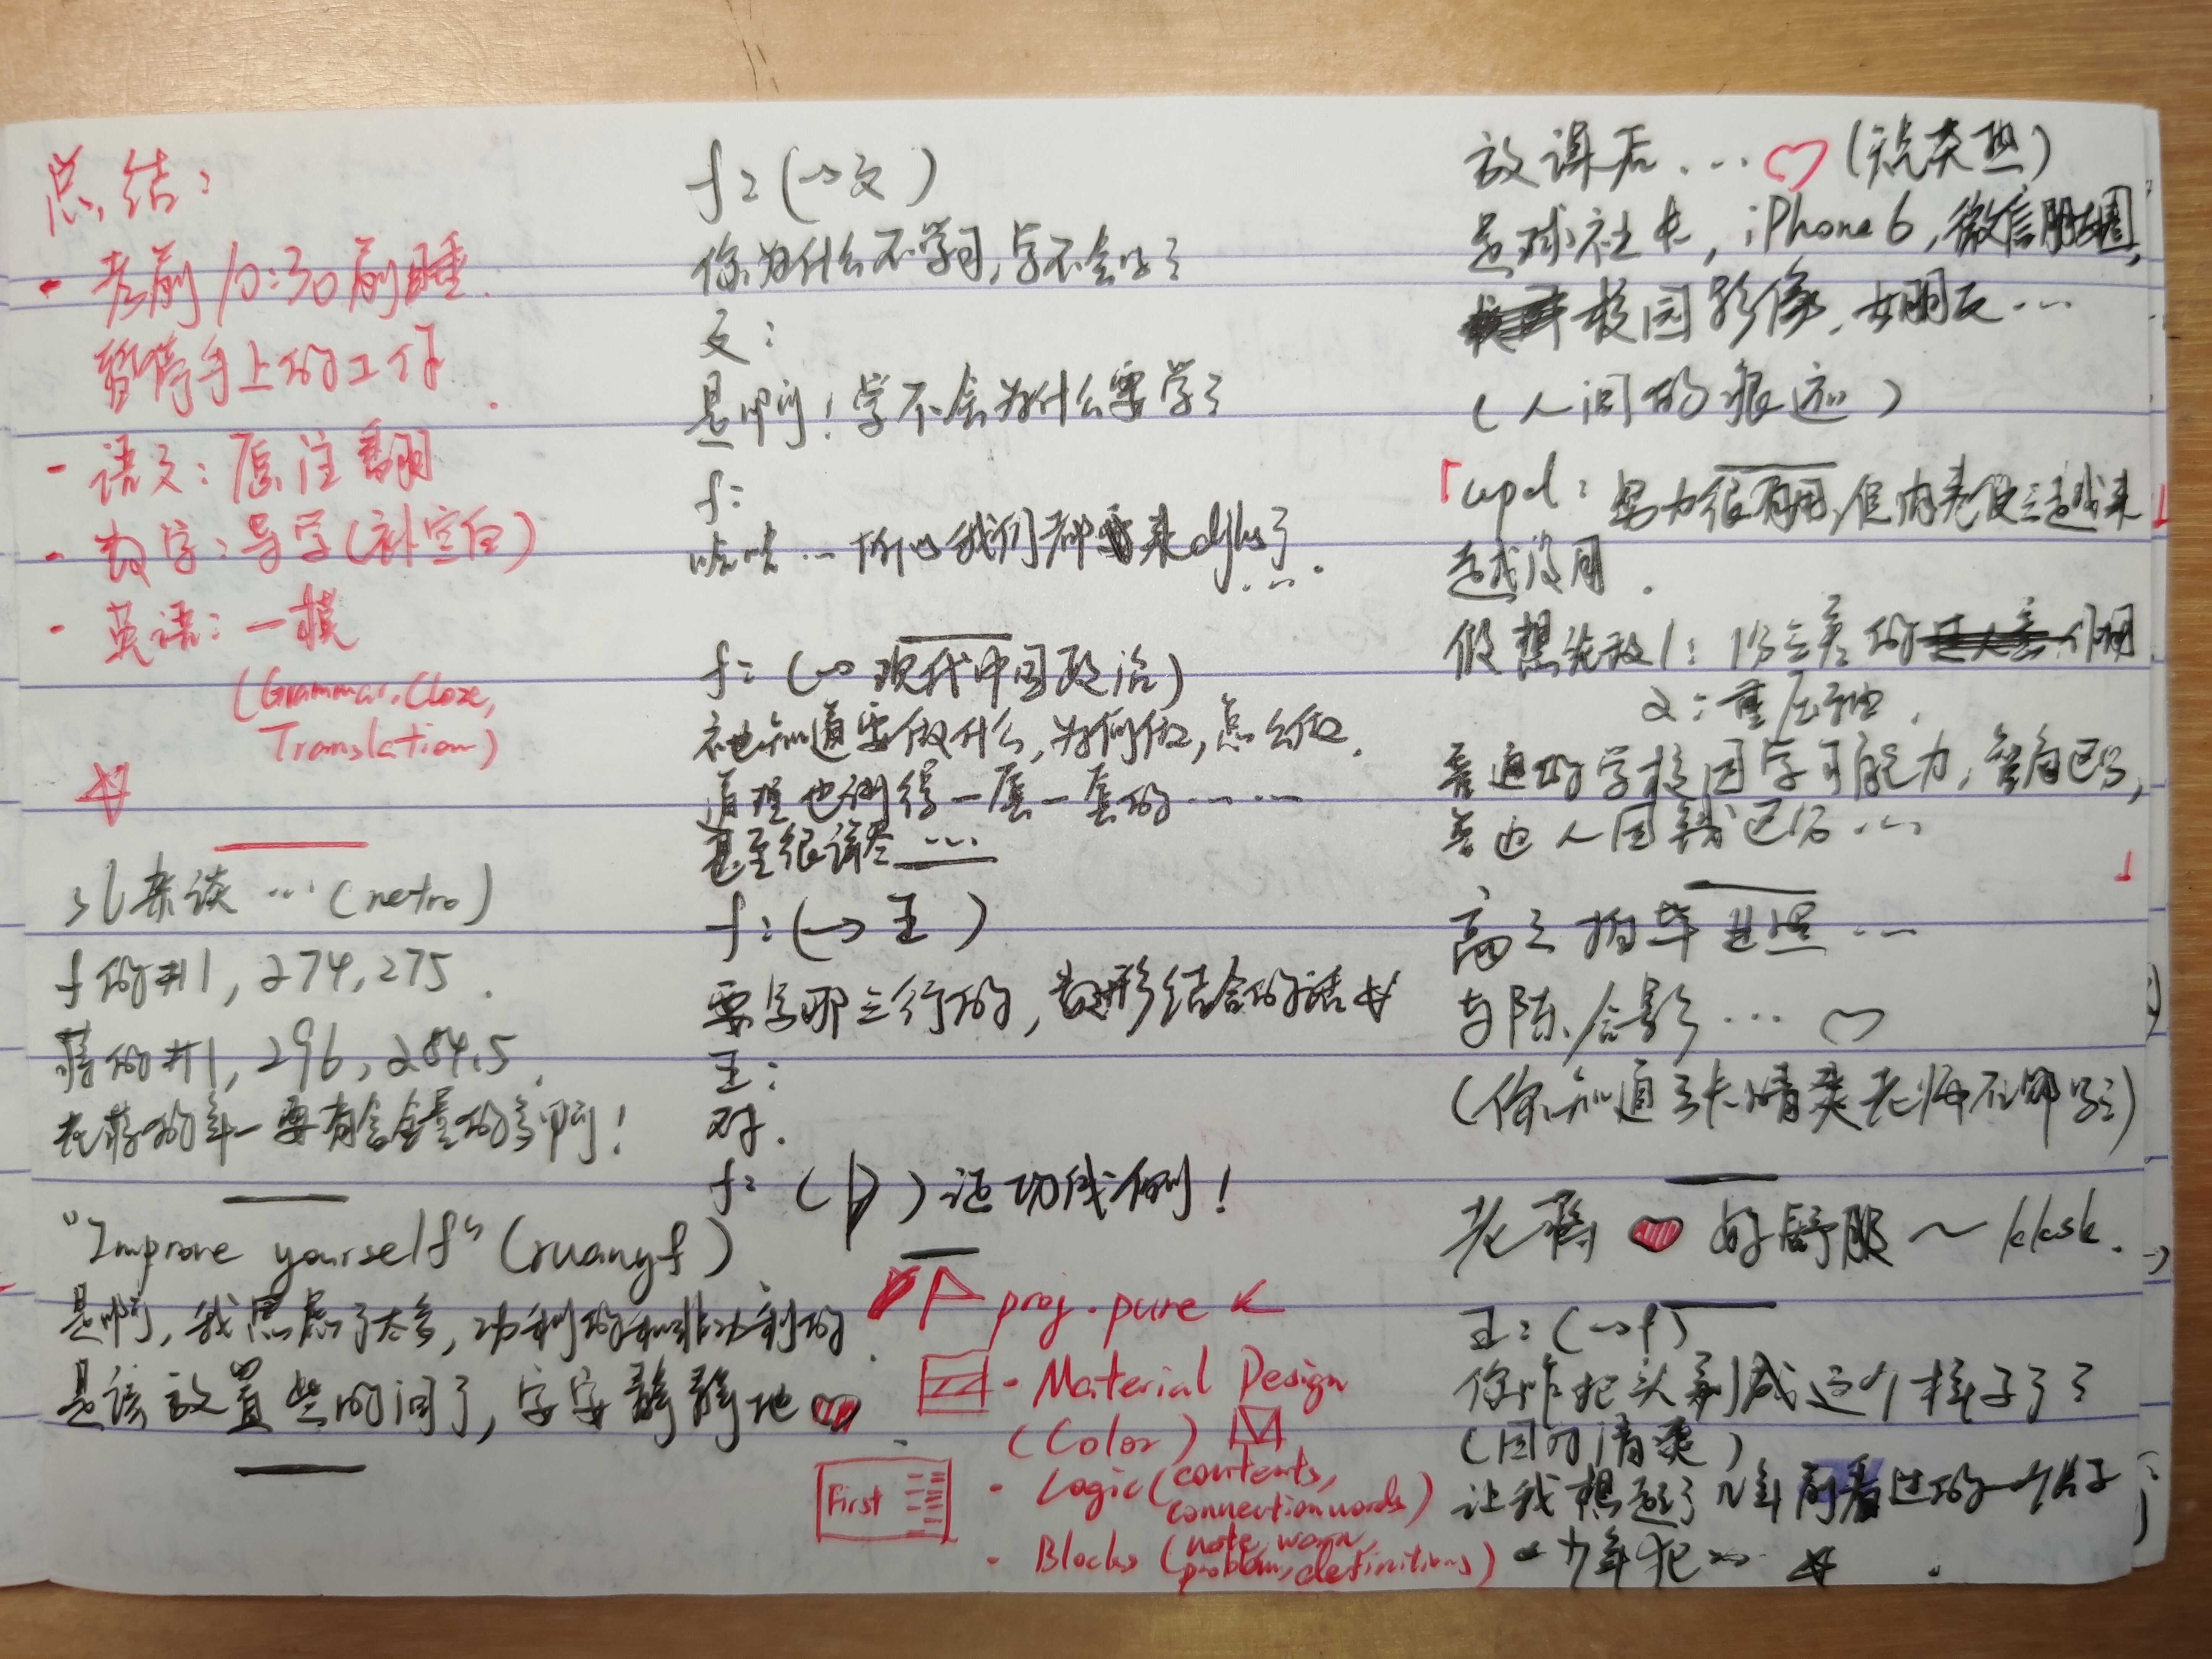 总结:
- 考前10:30前睡.
暂停手上的工作.
- 语文: 原注翻
- 数学: 导学(补空白)
- 英语: 一模
(Grammar, Cloze,
Translation)
杂谈…(retro)
f的#1, 274, 275.
蒋的#1, 296, 284.5.
是要有含金量的多啊!
"Improve yourself" (ruanyf)
是啊, 我思虑了太多, 功利的和非功利的.
是该放置些时间了, 安安静静地
f: (→文)
你为什么不学习, 学不会吗?
文:
是啊! 学不会为什么要学?
f:
哈哈… 所以我们都来djhs了.
f: (→现代中国政治)
知道要做什么, 为何做, 怎么做.
道理也讲得一套一套的……
甚至很详尽……
f: (→王)
要学那三行的, 数形结合的话
王:
对.
f: ( ) 还切线例!
proj.pure ←
- Material Design
(Color)
First
- Logic (contents,
connection words)
- Blocks (note, warn,
problem, definitions)
放课后… ♡ ( )
足球社长, iPhone 6, 微信朋友圈,
校园影像, 女朋友…
(人间的痕迹)
「upd: 努力很有用, 但内卷使之越来
越没用.
假想 1: 的作用
2: 重压轴.
普通的学校因学习能力, 皆自已,
普通人因 已…
高三拍毕业照…
与陈合影… ♡
(你知道张清爽老师在哪吗?)
老蒋 ♥ 好舒服～kksk.
王: (→f)
你咋把头剃成这个样子了?
(因为清爽)
让我想起了几年前看过的一个片子
- 少年犯…